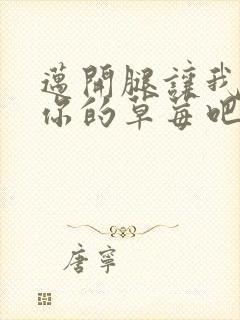 邁開腿讓我
你的草莓吧
唐寧